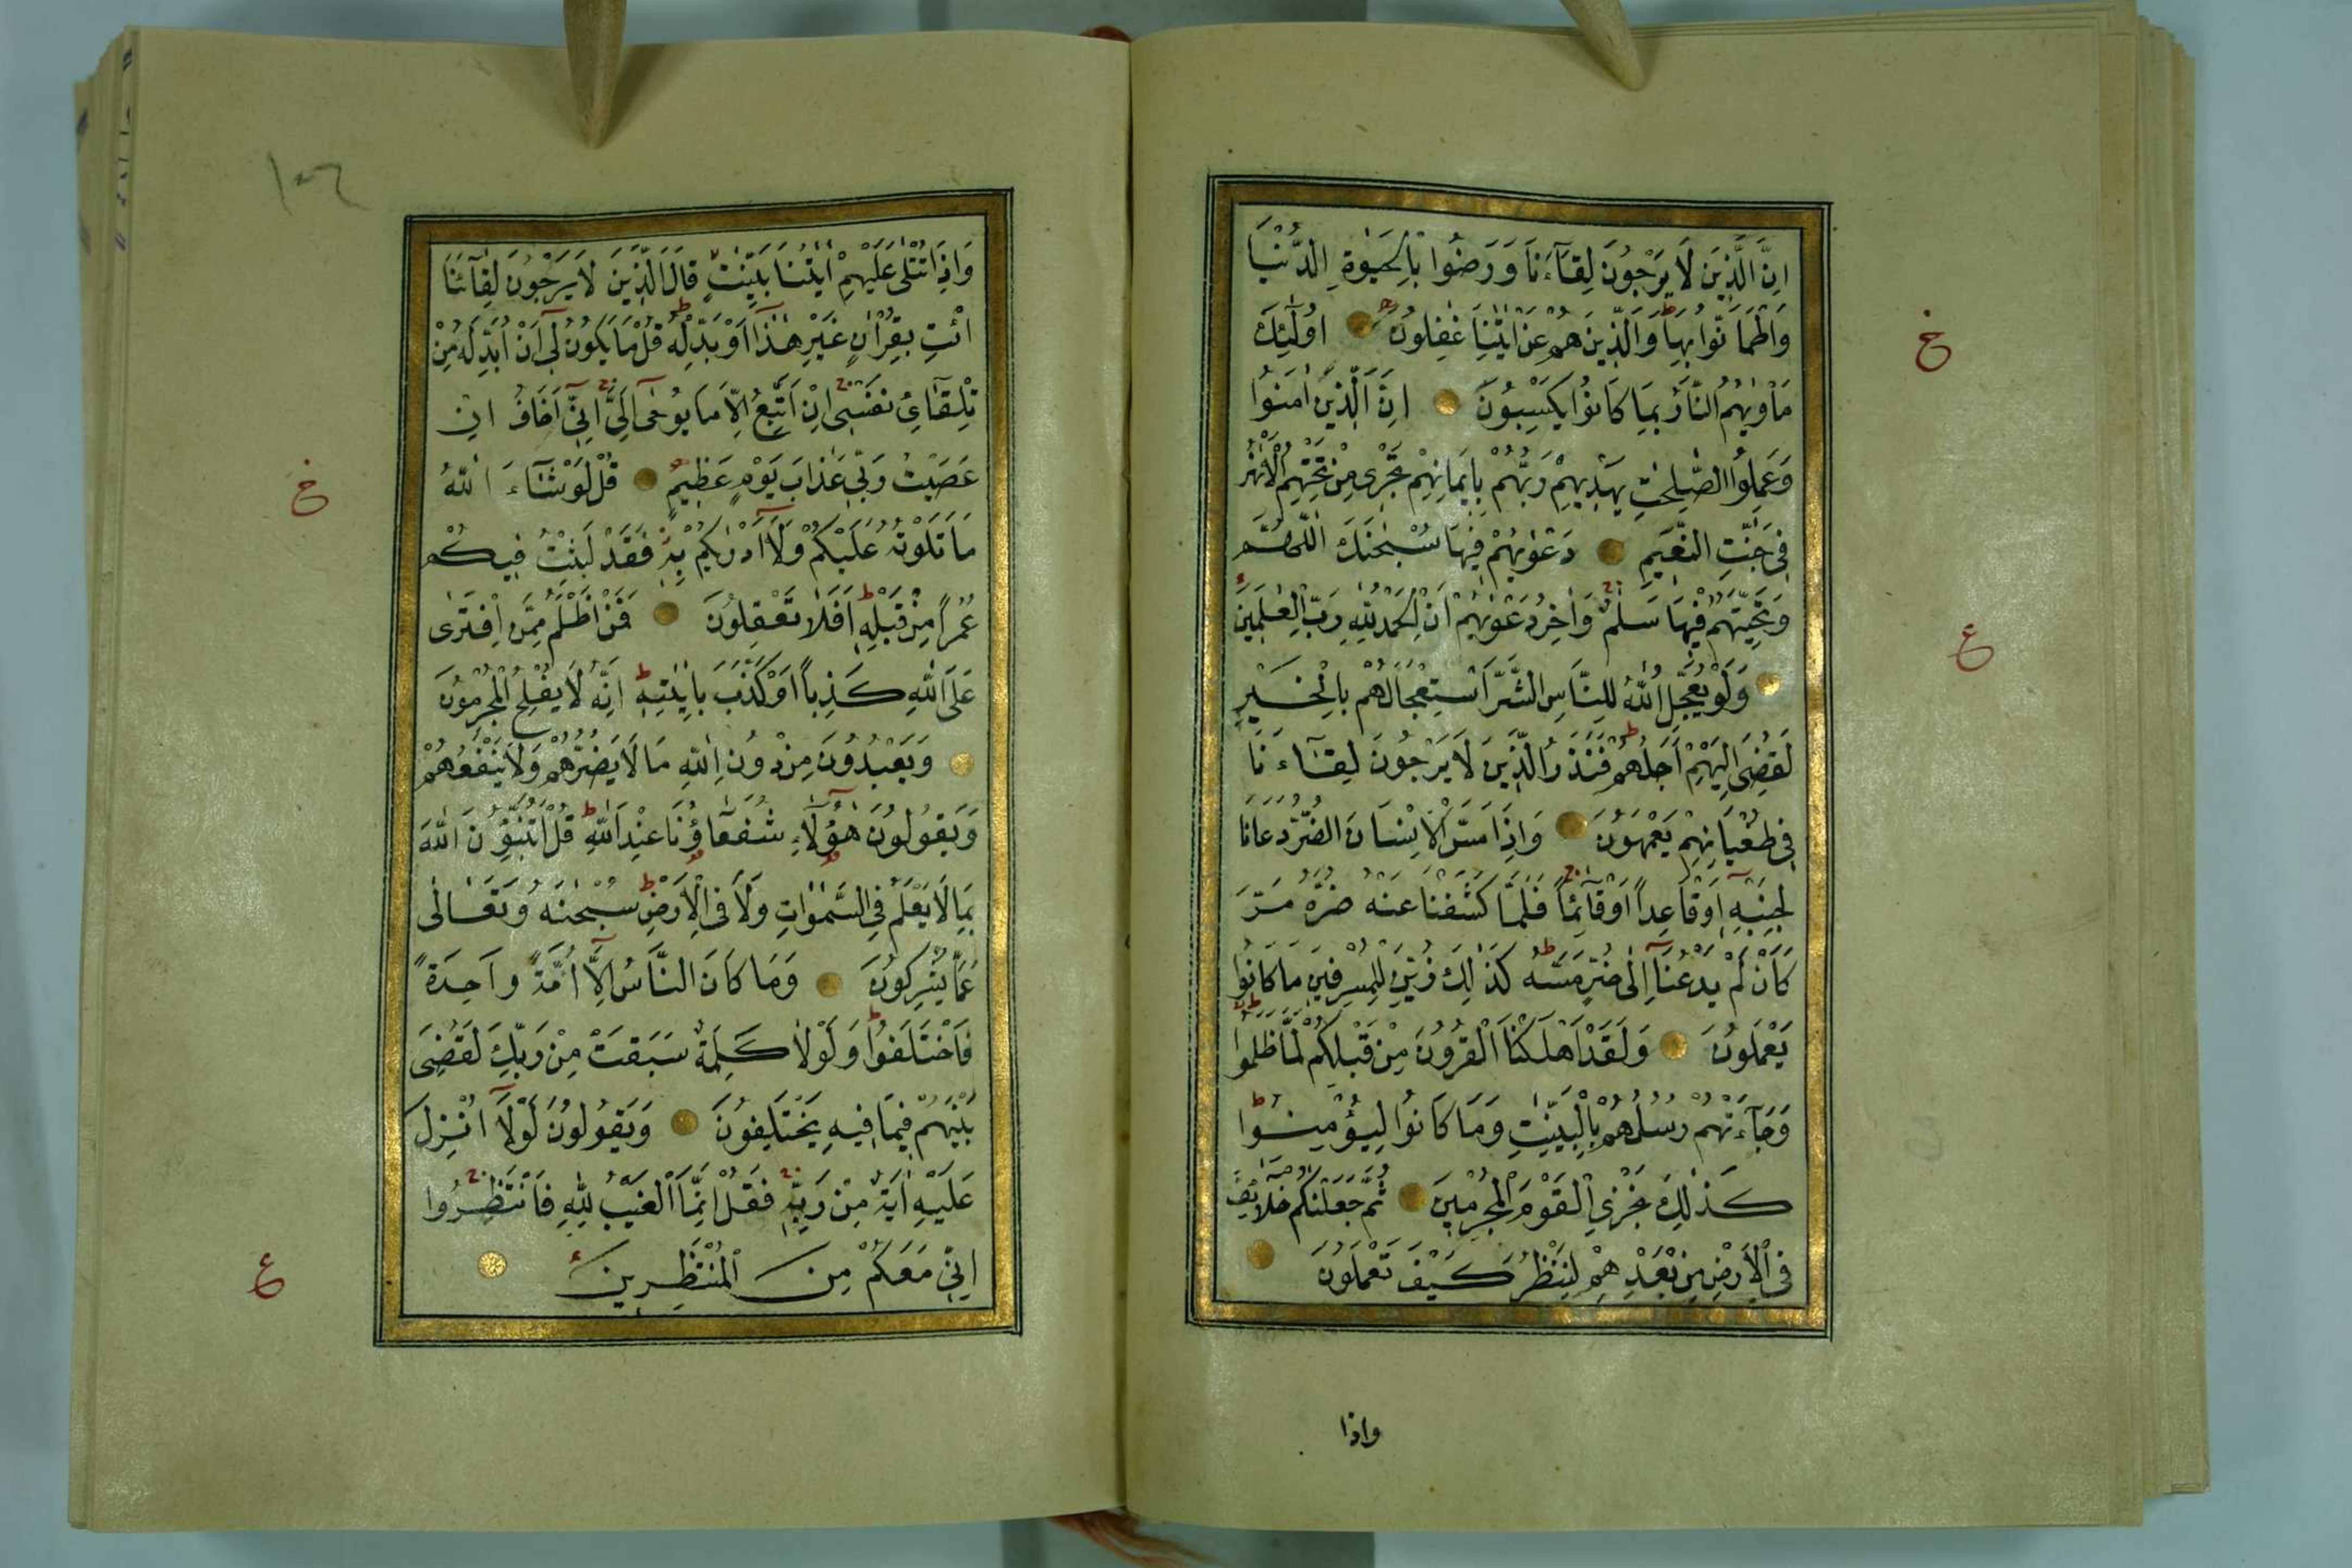 اِنَّ الَّذِينَ لَا يَرْجُونَ لِقَآءَنَا وَرَضُوا بِالْحَيٰوةِ الدُّنْيَا
وَاطْمَاَنُّوا بِهَا وَالَّذِينَ هُمْ عَنْ اٰيٰتِنَا غٰفِلُونَ اُولٰٓئِكَ
مَاْوٰيهُمُ النَّارُ بِمَا كَانُوا يَكْسِبُونَ اِنَّ الَّذِينَ اٰمَنُوا
وَعَمِلُوا الصّٰلِحٰتِ يَهْدِيهِمْ رَبُّهُمْ بِاِيمَانِهِمْ تَجْرِى مِنْ تَحْتِهِمُ الْاَنْهٰرُ
فِى جَنّٰتِ النَّعِيمِ دَعْوٰيهُمْ فِيهَا سُبْحٰنَكَ اللّٰهُمَّ
وَتَحِيَّتُهُمْ فِيهَا سَلٰمٌ وَاٰخِرُ دَعْوٰيهُمْ اَنِ الْحَمْدُ لِلّٰهِ رَبِّ الْعٰلَمِينَ
وَلَوْ يُعَجِّلُ اللّٰهُ لِلنَّاسِ الشَّرَّ اسْتِعْجَالَهُمْ بِالْخَيْرِ
لَقُضِىَ اِلَيْهِمْ اَجَلُهُمْ فَنَذَرُ الَّذِينَ لَا يَرْجُونَ لِقَآءَنَا
فِى طُغْيَانِهِمْ يَعْمَهُونَ وَاِذَا مَسَّ الْاِنْسَانَ الضُّرُّ دَعَانَا
لِجَنْبِهِ اَوْ قَاعِداً اَوْ قَآئِماً فَلَمَّا كَشَفْنَا عَنْهُ ضُرَّهُ مَرَّ
كَاَنْ لَمْ يَدْعُنَآ اِلٰى ضُرٍّ مَسَّهُ كَذٰلِكَ زُيِّنَ لِلْمُسْرِفِينَ مَا كَانُوا
يَعْمَلُونَ وَلَقَدْ اَهْلَكْنَا الْقُرُونَ مِنْ قَبْلِكُمْ لَمَّا ظَلَمُوا
وَجَآءَتْهُمْ رُسُلُهُمْ بِالْبَيِّنٰتِ وَمَا كَانُوا لِيُؤْمِنُوا
كَذٰلِكَ نَجْزِى الْقَوْمَ الْمُجْرِمِينَ ثُمَّ جَعَلْنٰكُمْ خَلَآئِفَ
فِى الْاَرْضِ مِنْ بَعْدِهِمْ لِنَنْظُرَ كَيْفَ تَعْمَلُونَ
واذا
خ
ع
وَاِذَا تُتْلٰى عَلَيْهِمْ اٰيٰتُنَا بَيِّنٰتٍ قَالَ الَّذِينَ لَا يَرْجُونَ لِقَآئَنَا
ائْتِ بِقُرْاٰنٍ غَيْرِ هٰذَآ اَوْ بَدِّلْهُ قُلْ مَا يَكُونُ لِىٓ اَنْ اُبَدِّلَهُ مِنْ
تِلْقَآئِ نَفْسِى اِنْ اَتَّبِعُ اِلَّا مَا يُوحٰىٓ اِلَىَّ اِنِّىٓ اَخَافُ اِنْ
عَصَيْتُ رَبِّى عَذَابَ يَوْمٍ عَظِيمٍ قُلْ لَوْ شَآءَ اللّٰهُ
مَا تَلَوْتُهُ عَلَيْكُمْ وَلَآ اَدْرٰيكُمْ بِهِ فَقَدْ لَبِثْتُ فِيكُمْ
عُمُراً مِنْ قَبْلِهِ اَفَلَا تَعْقِلُونَ فَمَنْ اَظْلَمُ مِمَّنِ افْتَرٰى
عَلَى اللّٰهِ كَذِباً اَوْ كَذَّبَ بِاٰيٰتِهِ اِنَّهُ لَا يُفْلِحُ الْمُجْرِمُونَ
وَيَعْبُدُونَ مِنْ دُونِ اللّٰهِ مَا لَا يَضُرُّهُمْ وَلَا يَنْفَعُهُمْ
وَيَقُولُونَ هٰٓؤُلَآءِ شُفَعَآؤُنَا عِنْدَ اللّٰهِ قُلْ اَتُنَبِّؤُنَ اللّٰهَ
بِمَا لَا يَعْلَمُ فِى السَّمٰوَاتِ وَلَا فِى الْاَرْضِ سُبْحٰنَهُ وَتَعَالٰى
عَمَّا يُشْرِكُونَ وَمَا كَانَ النَّاسُ اِلَّآ اُمَّةً وَاحِدَةً
فَاخْتَلَفُوا وَلَوْلَا كَلِمَةٌ سَبَقَتْ مِنْ رَبِّكَ لَقُضِىَ
بَيْنَهُمْ فِيمَا فِيهِ يَخْتَلِفُونَ وَيَقُولُونَ لَوْلَآ اُنْزِلَ
عَلَيْهِ اٰيَةٌ مِنْ رَبِّهِ فَقُلْ اِنَّمَا الْغَيْبُ لِلّٰهِ فَانْتَظِرُوا
اِنِّى مَعَكُمْ مِنَ الْمُنْتَظِرِينَ
خ
ع